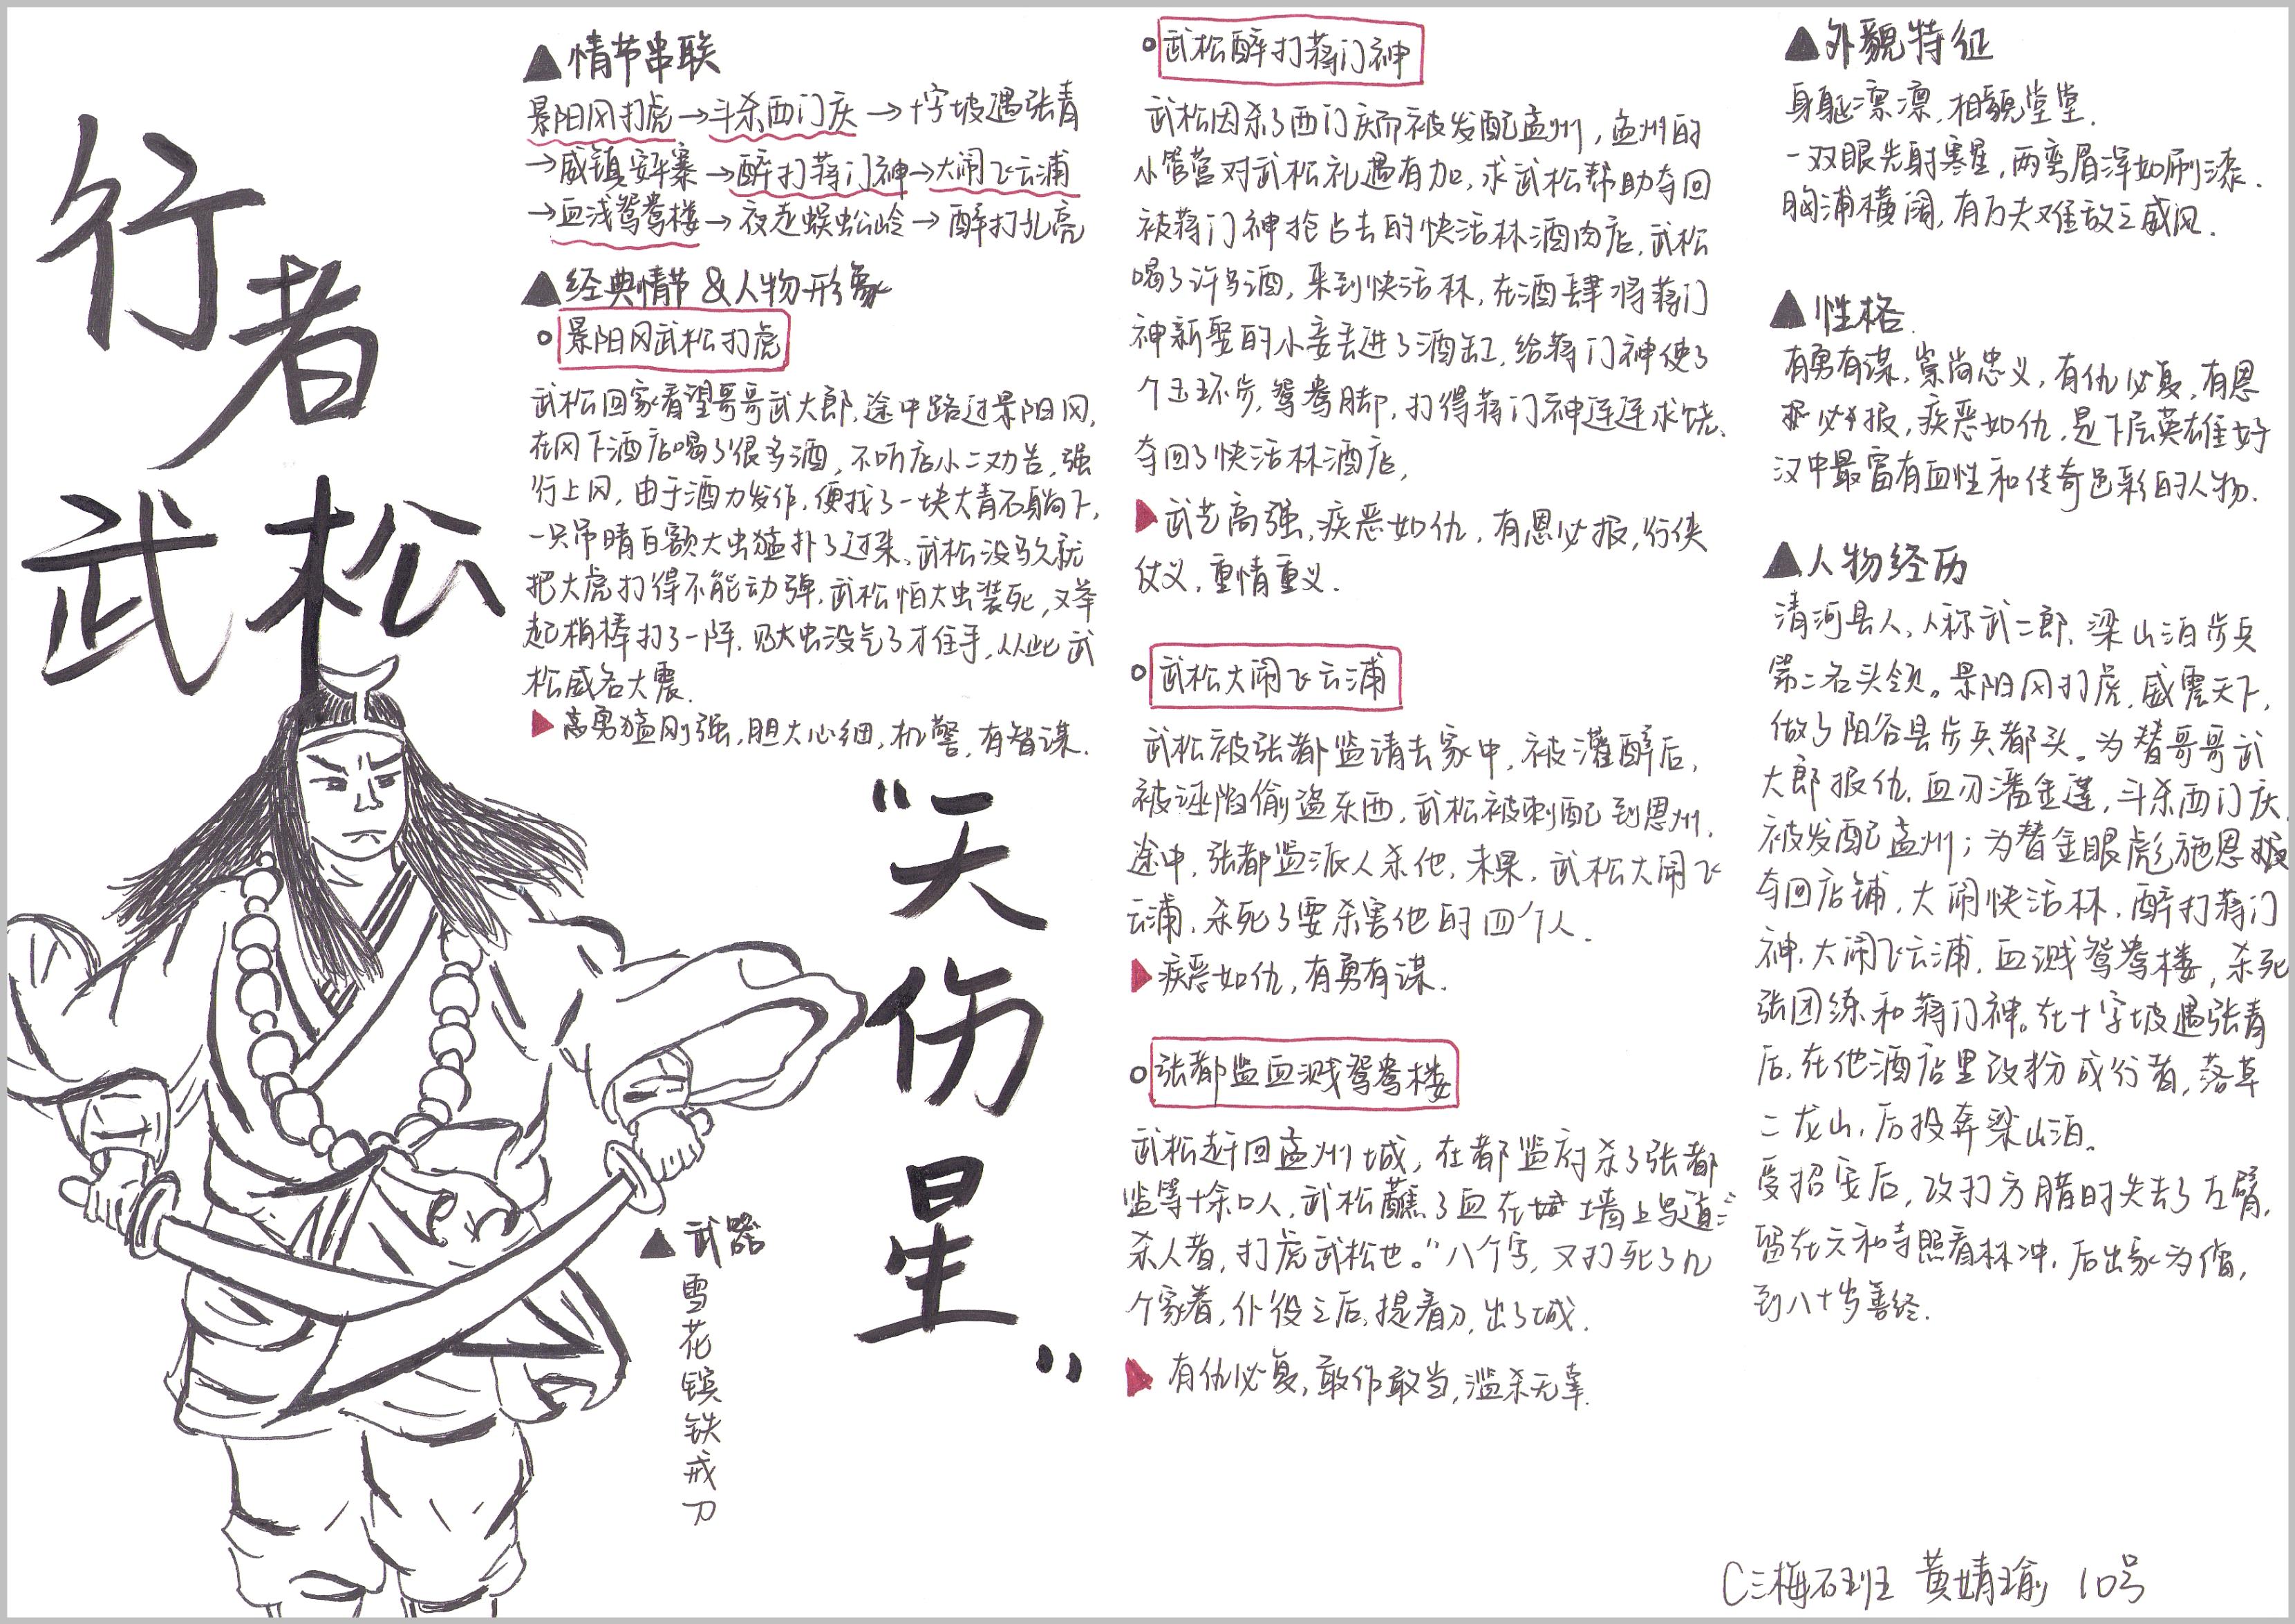 行者
武松
▲情节串联
景阳冈打虎→斗杀西门庆→十字坡遇张青
→威镇安平寨→醉打蒋门神→大闹飞云浦
→血浅鸳鸯楼→夜走蜈蚣岭→醉打孔亮
▲经典情节&人物形象
景阳冈武松打虎
武松回家看望哥哥武大郎,途中路过景阳冈,
在冈下酒店喝了很多酒,不听店小二劝告,强
行上冈,由于酒力发作,便找了一块大青石躺下,
一只吊睛白额大虫猛扑了过来、武松没多久就
把大虎打得不能动弹,武松怕大虫装死,又举
起梢棒打了一阵,见大虫没气了才住手,从此武
松威名大震.
▶高勇猛刚强,胆大心细,机警,有智谋.
“天伤星”
▲武器
雪花镔铁戒刀
武松醉打蒋门神
武松因杀了西门庆而被发配孟州,孟州的
小管营对武松礼遇有加,求武松帮助夺回
被蒋门神抢占去的快活林酒肉店,武松
喝了许多酒,来到快活林,在酒肆将蒋门
神新娶的小妾丢进了酒缸,给蒋门神使了
个玉环步,鸳鸯脚,打得蒋门神连连求饶、
夺回了快活林酒店,
▶武艺高强,疾恶如仇,有恩必报,行侠
仗义,重情重义.
武松大闹飞云浦
武松被张都监请去家中,被灌醉后,
被诬陷偷盗东西,武松被刺配到恩州,
途中,张都监派人杀他,未果,武松大闹飞
云浦,杀死了要杀害他的四个人.
▶疾恶如仇,有勇有谋.
张都监血溅鸳鸯楼
武松赶回孟州城,在都监府杀了张都
监等十余口人,武松蘸了血在墙上写道:“
杀人者,打虎武松也。”八个字,又打死了几
个家着,仆役之后,提着刀,出了城.
▶有仇必复,敢作敢当,滥杀无辜.
▲外貌特征
身躯凛凛,相貌堂堂.
一双眼光射寒星,两弯眉浑如刷漆.
胸浦横阔,有万夫难敌之威风.
▲性格.
有勇有谋,崇尚忠义,有仇必复,有恩
必报,疾恶如仇,是下层英雄好
汉中最富有血性和传奇色彩的人物.
▲人物经历
清河县人,人称武二郎,梁山泊步兵
第二名头领。景阳冈打虎,威震天下,
做了阳谷县步兵都头。为替哥哥武
大郎报仇,血刃潘金莲,斗杀西门庆,
被发配孟州;为替金眼彪施恩
夺回店铺,大闹快活林,醉打蒋门
神,大闹飞云浦,血溅鸳鸯楼,杀死
张团练和蒋门神。在十字坡遇张青
后,在他酒店里改扮成行者,落草
二龙山,后投奔梁山泊.
受招安后,攻打方腊时失去了左臂,
留在六和寺照看林冲,后出家为僧,
到八十岁善终.
C三梅石班 黄婧瑜 10号